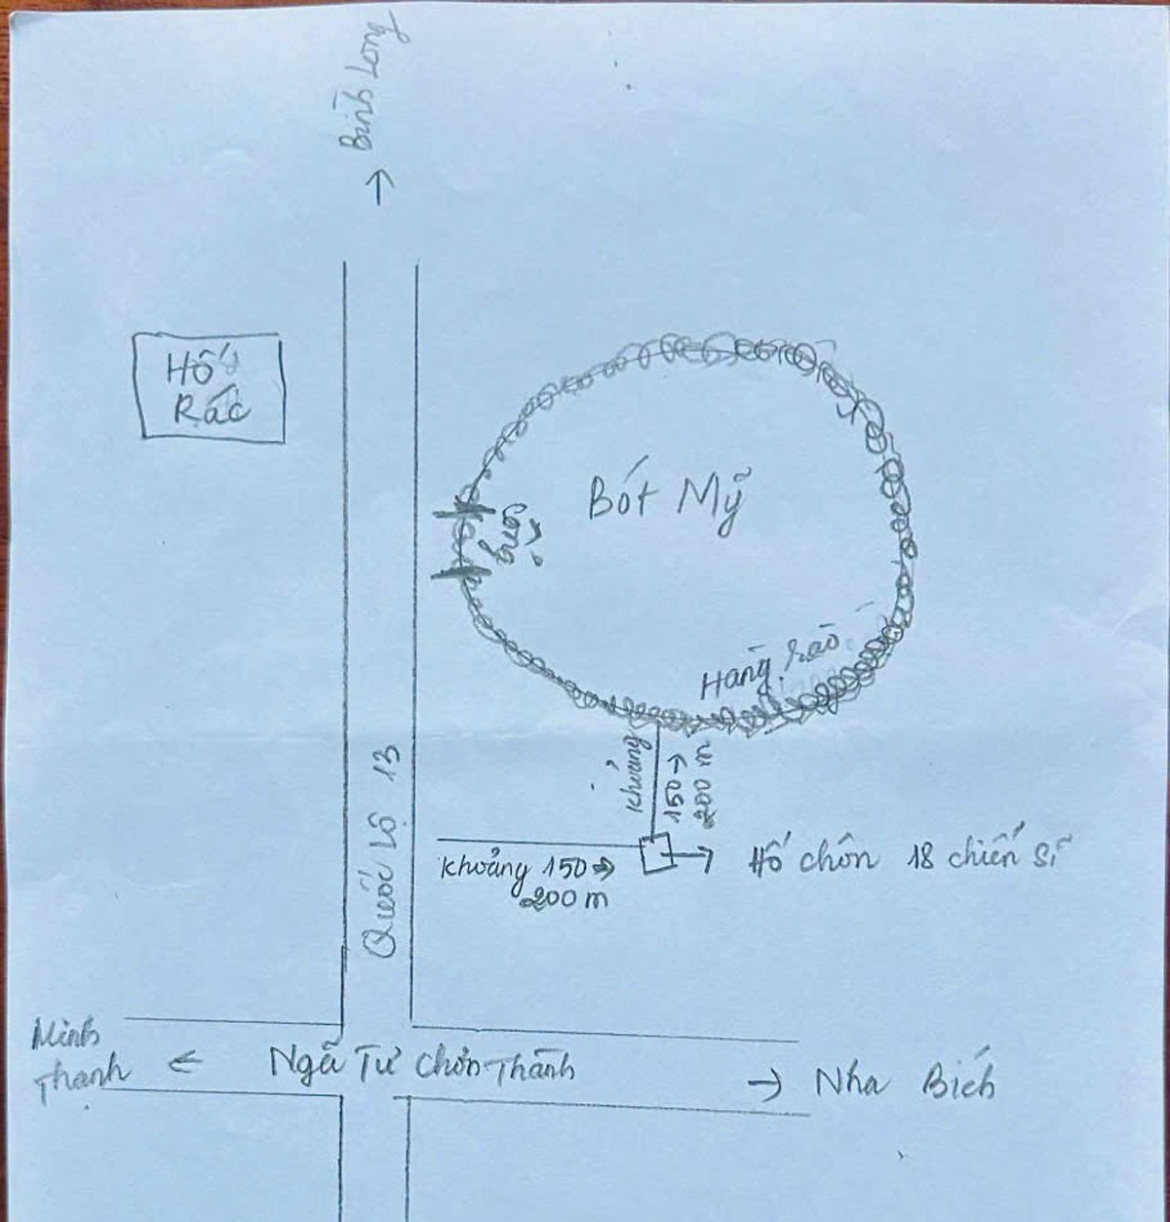 → Bình Long
Hố
Rác
Bót Mỹ
Cổng
Hàng rào
Quốc Lộ 13
khoảng
150 →
200 m
khoảng 150 →
200 m
→ Hố chôn 18 chiến sĩ
Minh
Thanh ← Ngã Tư Chơn Thành → Nha Bích